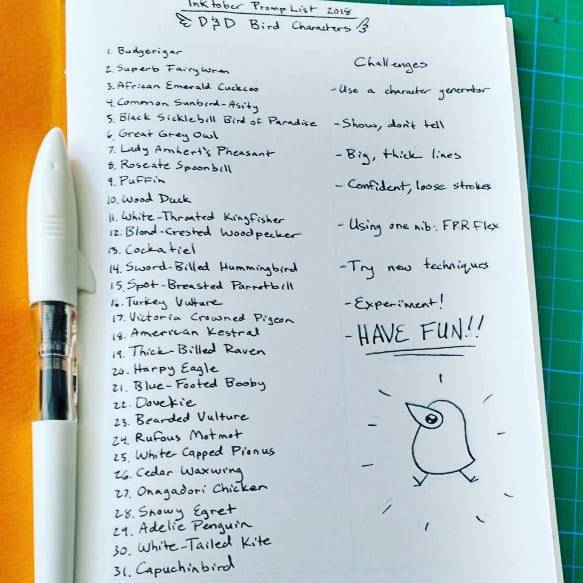 Inktober Promp List 2018
D&D Bird Characters
1. Budgerigar
2. Superb Fairy Wren
3. African Emerald Cuckcoo
4. Common Sunbird-Asity
5. Black Sicklebill Bird of Paradise
6. Great Grey Owl
7. Lady Amhert's Pheasant
8. Roseate Spoonbill
9. Puffin
10. Wood Duck
11. White-Throated Kingfisher
12. Blond-Crested Woodpecker
13. Cockatiel
14. Sword-Billed Hummingbird
15. Spot-Breasted Parrotbill
16. Turkey Vulture
17. Victoria Crowned Pigeon
18. American Kestral
19. Thick-Billed Raven
20. Harpy Eagle
21. Blue-Footed Booby
22. Dovekie
23. Bearded Vulture
24. Rufous Motmot
25. White Capped Pionus
26. Cedar Waxwing
27. Onagadori Chicken
28. Snowy Egret
29. Adelie Penguin
30. White-Tailed Kite
31. Capuchinbird
Challenges
- Use a character generator
- Show, don't tell
- Big, thick lines
- Confident, loose strokes
- Using one nib: FPR Flex
- Try new techniques
- Experiment!
- HAVE FUN!!